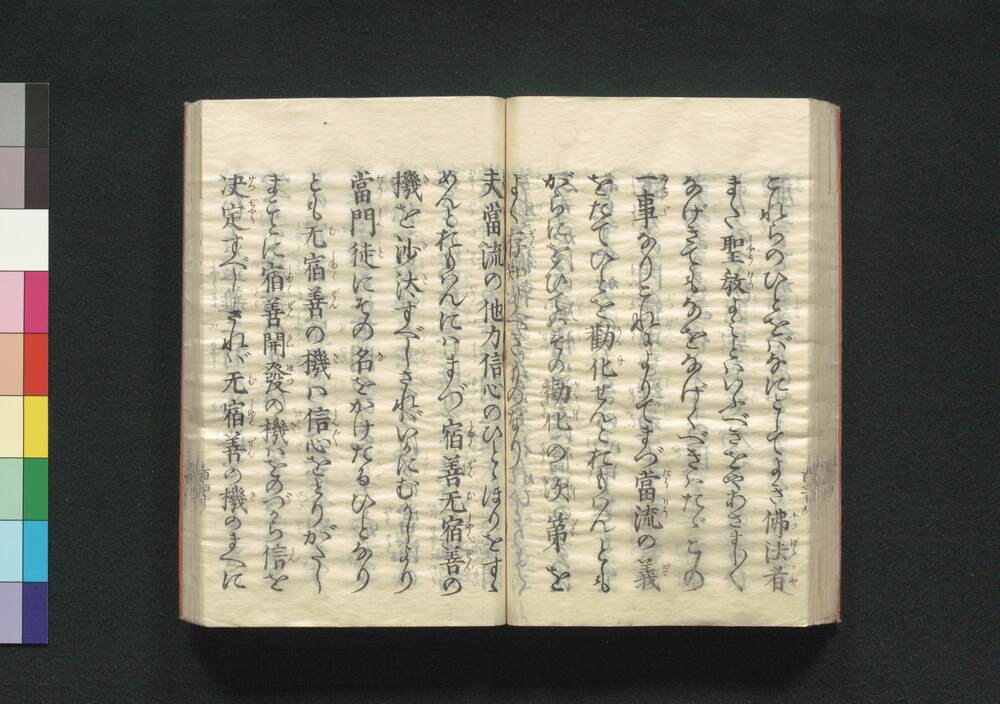 これらのひとをばなにとしてよき佛法者
また聖教よみとはいふべきをやあさまし〱
なげきてもなをなげくべきはたゞこの
一事なりこれによりてまづ當流の義
をたてひとを勸化せんとおもはんとも
がらにをひてはその勸化の次第を
よく存知すべきものなり
夫當流の他力信心のひととほりをすゝ
めんとおもはんにはまづ宿善无宿善の
機を沙汰すべしさればいかにむかしより
當門徒にその名をかけたるひとなり
とも无宿善の機は信心をとりがたし
まことに宿善開發の機はをのづから信を
决定すべしされば无宿善の機のまへに